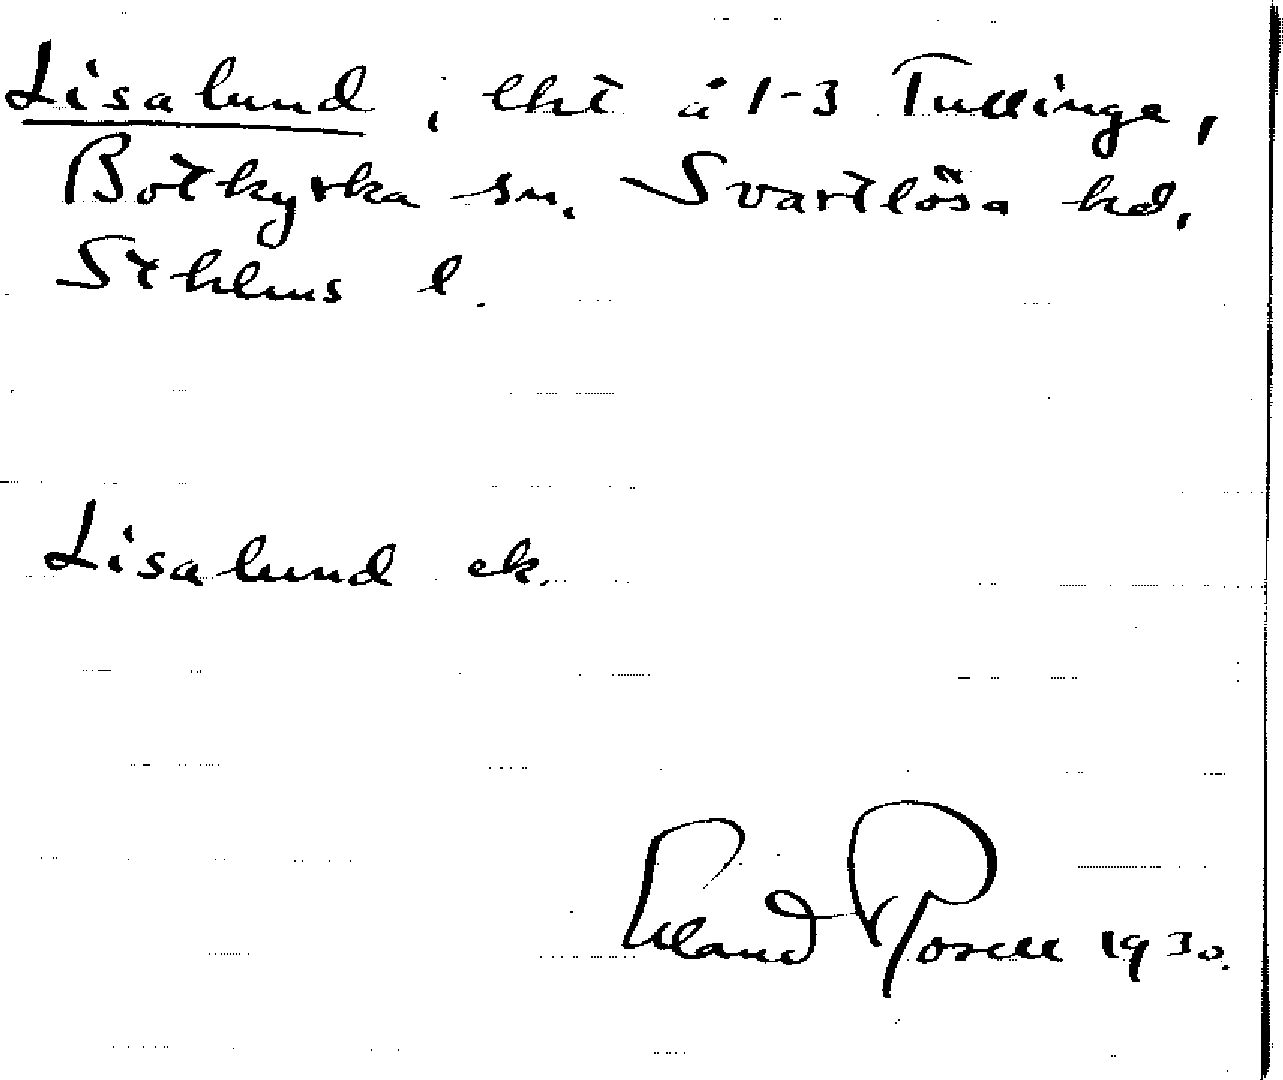 Lisalund, lht å 1-3 Tullinge,
Botkyrka sn. Svartlösa hd.
Sthlms l.
Lisalund ek.
Erland Rosell 1930.